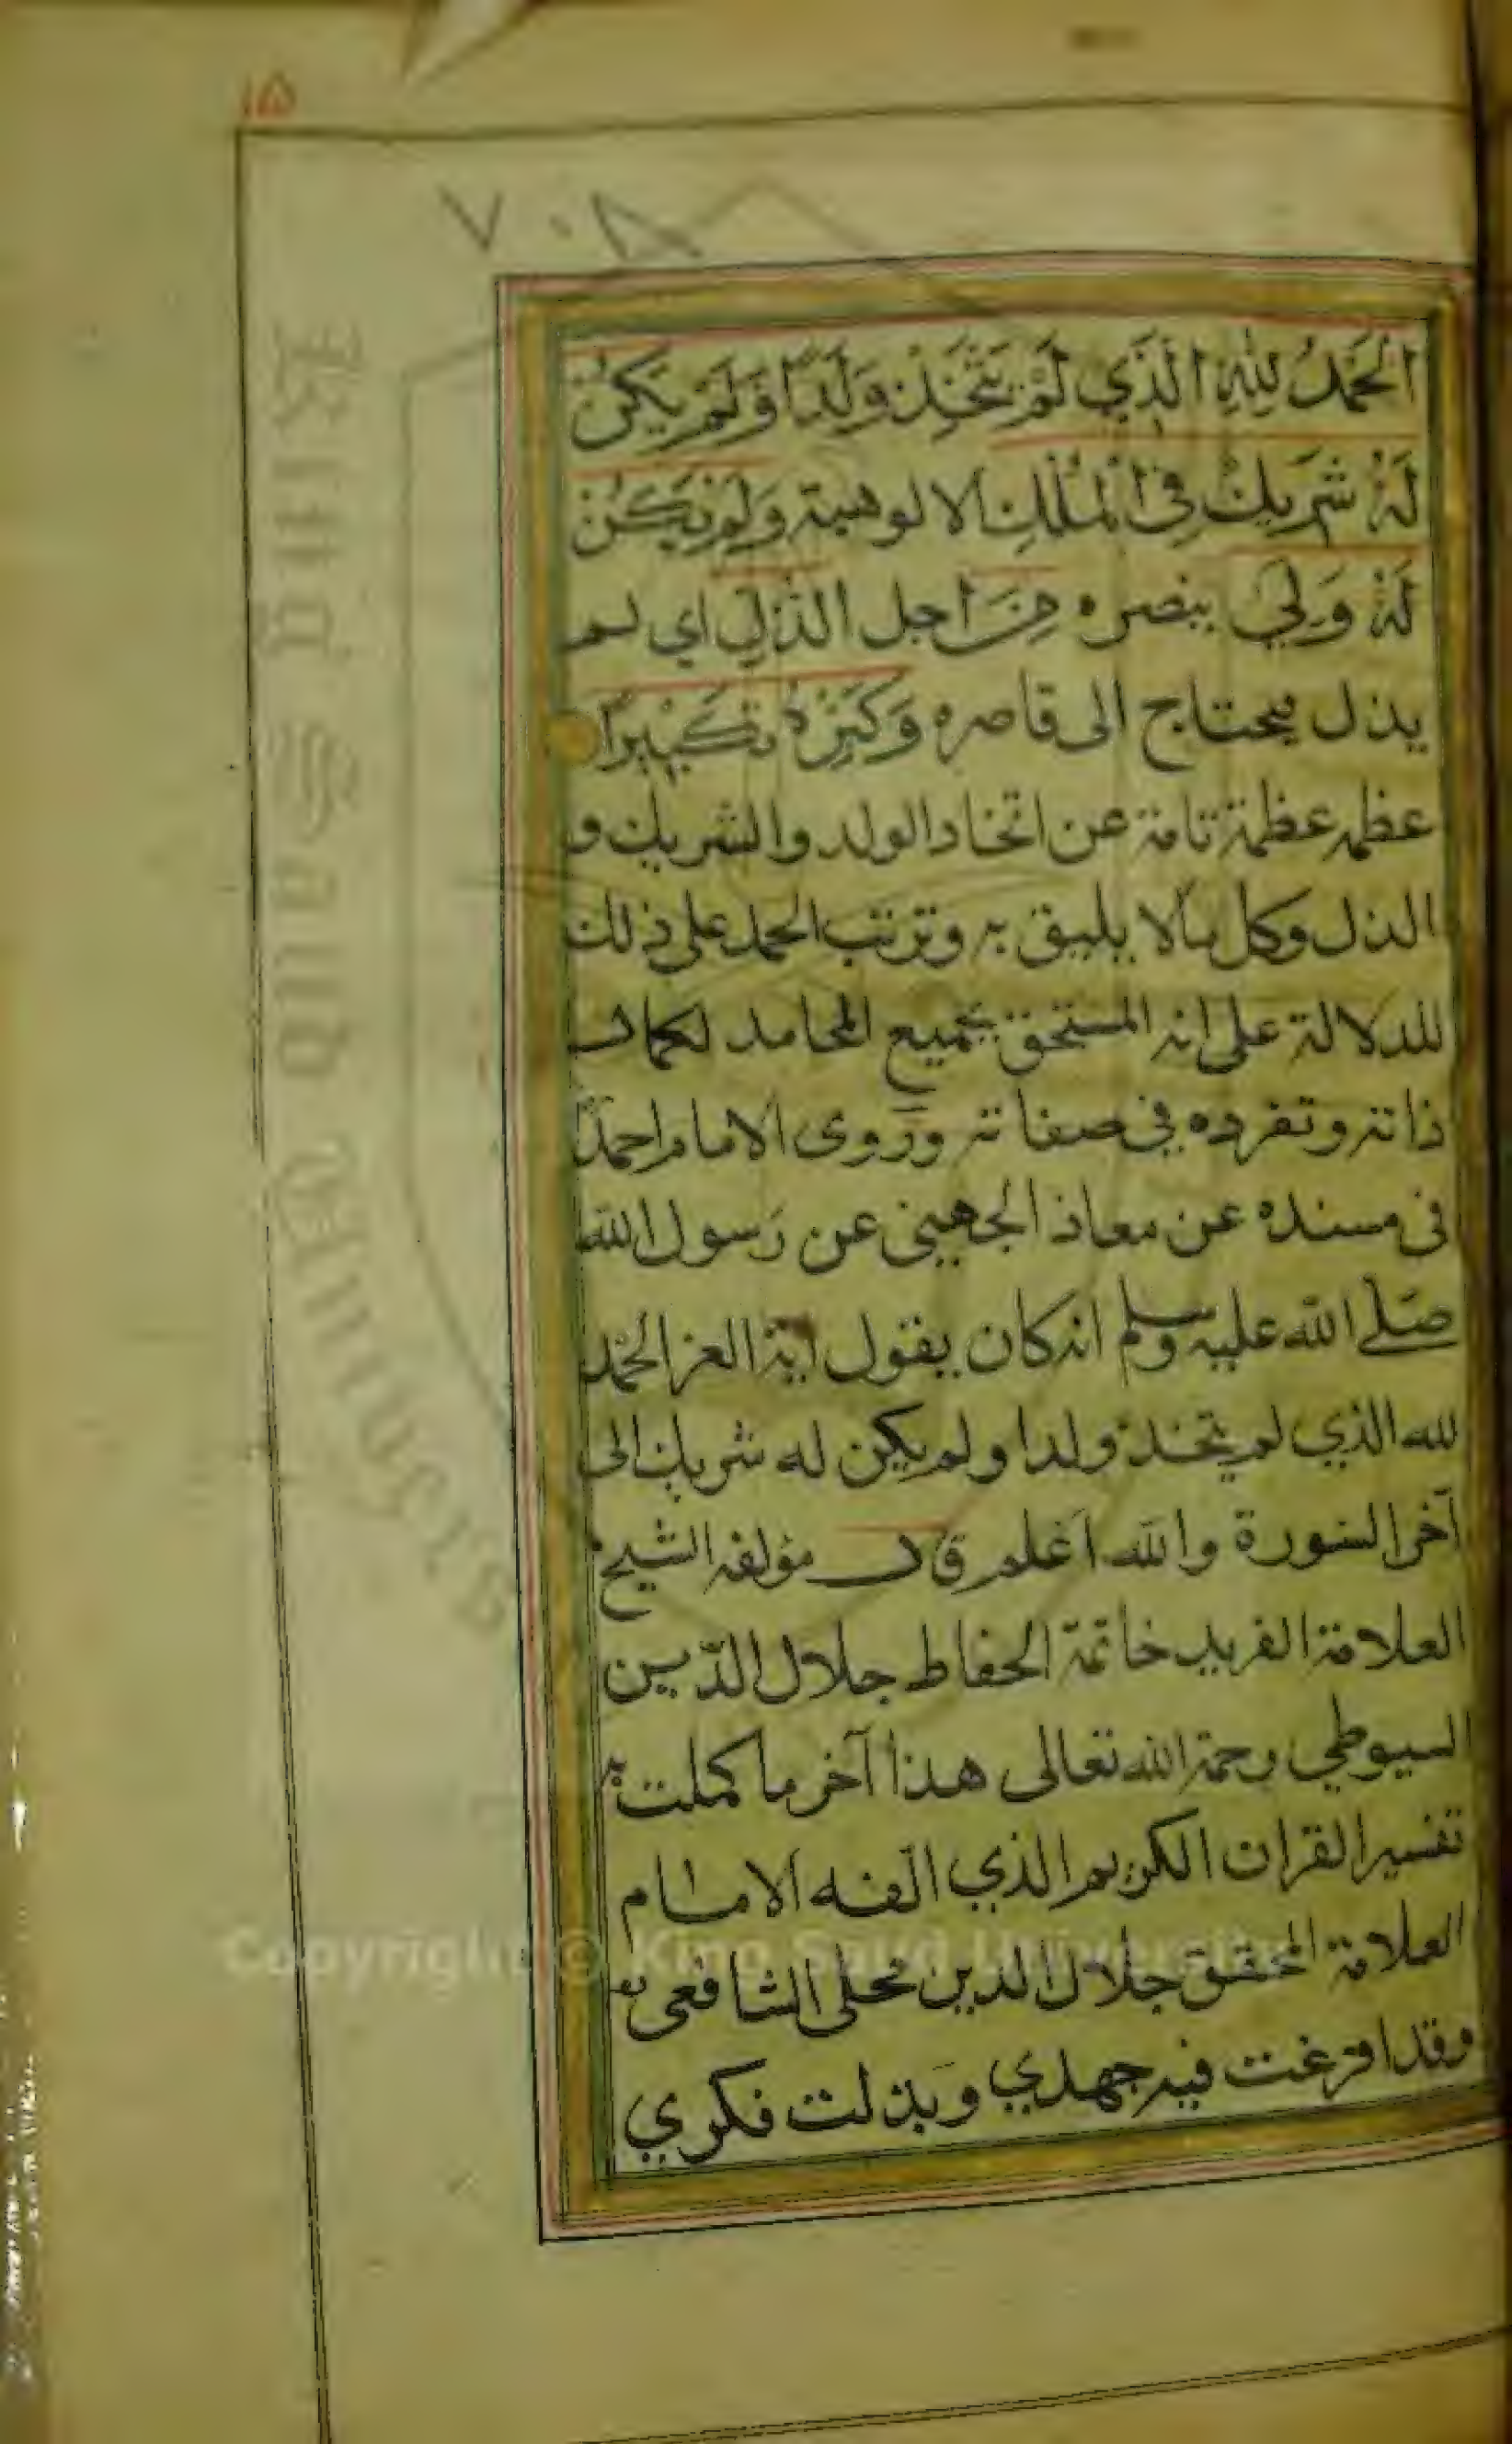 ١٥
٧٠٨
الْحَمْدُ لِلّٰهِ الَّذِي لَمْ يَتَّخِذْ وَلَدًا وَلَمْ يَكُنْ
لَهُ شَرِيكٌ فِي الْمُلْكِ الالوهية وَلَمْ يَكُنْ
لَهُ وَلِيٌّ ينصره مِنَ اجل الذُّلِّ اي لم
يذل فيحتاج الى قاصره وَكَبِّرْهُ تَكْبِيرًا
عظمه عظمة تامة عن اتخاد الولد والشريك و
الذل وكل مالا يليق به وترتب الحمد على ذلك
للدلالة على انه المستحق بجميع المحامد لكمال
ذاته وتفرده في صفاته وروى الامام احمد
فى مسنده عن معاذ الجهيني عن رسول الله
صلى الله عليه وسلم انه كان يقول اية العز الحمد
لله الذي لم يتخذ ولدا ولم يكن له شريك الى
آخر السورة والله اعلم قال مؤلفه الشيخ
العلامة الفريد خاتمة الحفاظ جلال الدّين
السيوطي رحمة الله تعالى هذا آخر ما كملت به
تفسير القران الكريم الذي الّفه الامام
العلامة المحقق جلال الدين محلى الشافعى
وقد افرغت فيه جهدي وبذلت فكري
King Saud University
Copyright © King Saud University